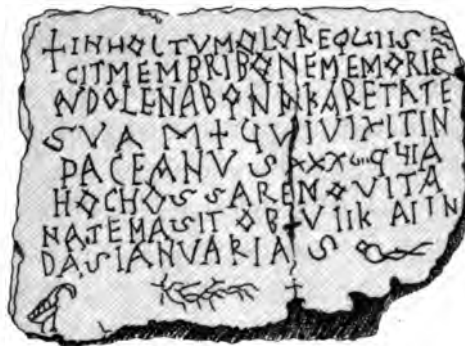 +INHOLTVMOLOREQVIIS
CITMEMBRIBONEMEMORIE
NDOLENABONNAKARETATE
SVA M+QVIVIXITIN
PACEANVSXXX
HOCHOSSARENOVITA
NATEMASITOB+VIIKAIIN
DASIANVARIAS